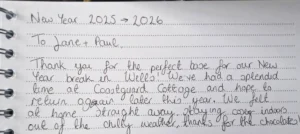 New Year 2025 → 2026
To Jane + Paul,
Thank you for the perfect base for our New
Year break in Wells! We've had a splendid
time at Coastguard Cottage and hope to
return again later this year. We felt
at home straight away. Staying cosy indoors
out of the chilly weather, thanks for the chocolates